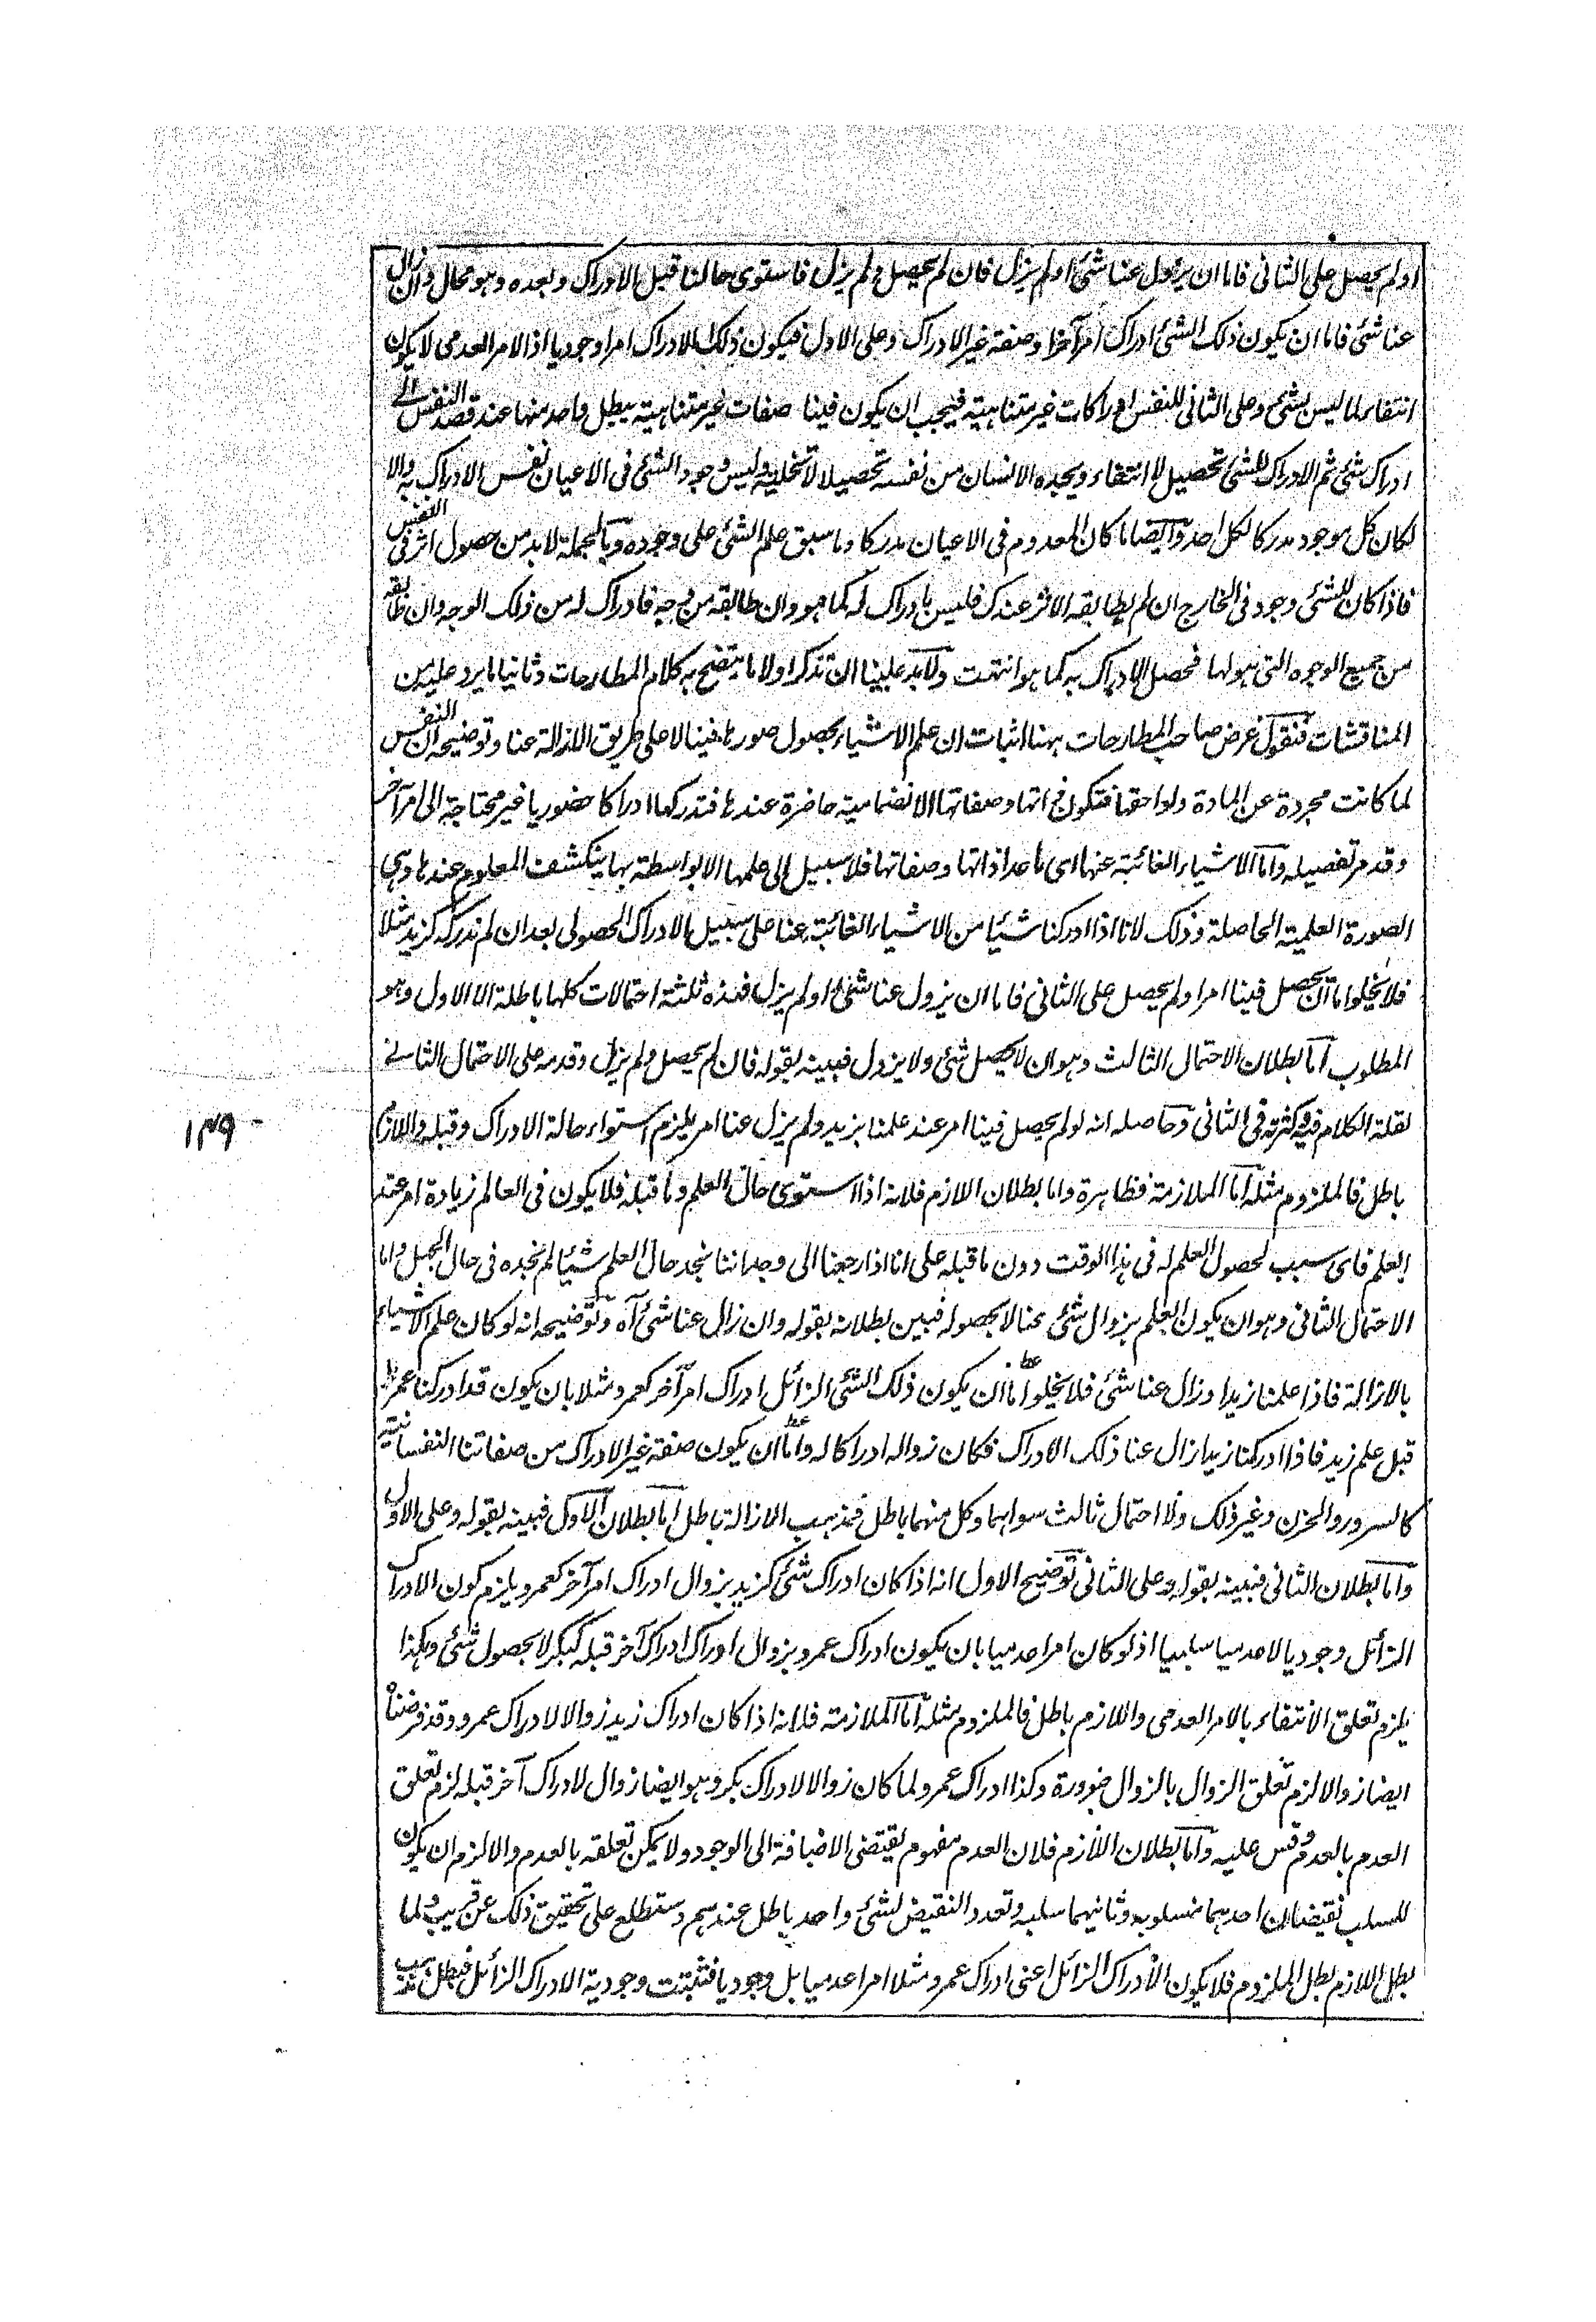 او لم يحصل على الثانى فاما ان يزول عنا شئ او لم يزل فان لم يحصل و لم يزل فاستوى حالنا قبل الادراك و بعده وهو محال وان زال
عنا شئ فاما ان يكون ذلك الشئ ادراك امر آخر او صفة غير الادراك وعلى الاول فيكون ذلك الادراك امرا وجوديا اذ الامر العدمى لا يكون
انتفاء لما ليس بشئ وعلى الثانى للنفس ادراكات غير متناهية فيجب ان يكون فينا صفات غير متناهية يبطل واحد منها عند قصد النفس الے
ادراك شئ ثم الادراك للشئ تحصيل لا انتفاء ويجده الانسان من نفسه تحصيلا لا تخلية وليس وجود الشئ فى الاعيان نفس الادراك به والا
لكان كل موجود مدركا لكل احد وايضا ما كان المعدوم فى الاعيان مدركا وما سبق علم الشئ على وجوده وبالجملة لا بد من حصول اثر فى النفس
فاذا كان للشئ وجود فى الخارج ان لم يطابقه الاثر عندك فليس بادراك له كما هو وان طابقه من وجه فادراك له من ذلك الوجه وان طابقه
من جميع الوجوه التى هو لها فحصل الادراك به كما هو انتهت ولا بد علينا ان نذكر اولا ما يتضح به كلام المطارحات وثانيا ما يرد عليه من
المناقشات فنقول غرض صاحب المطارحات ههنا اثبات ان علم الاشياء بحصول صورها فينا لا على طريق الازالة عنا وتوضيحه ان النفس
لما كانت مجردة عن المادة ولواحقها فتكون ذاتها وصفاتها الانضمامية حاضرة عندها فتدركها ادراكا حضوريا غير محتاجة الى امر آخر
وقد مر تفصيله واما الاشياء الغائبة عنها اى ما عدا ذاتها وصفاتها فلا سبيل الى علمها الا بواسطة بها ينكشف المعلوم عندها وهى
الصورة العلمية الحاصلة وذلك لانا اذا ادركنا شيئا من الاشياء الغائبة عنا على سبيل الادراك الحصولى بعد ان لم ندركه كزيد مثلا
فلا يخلو اما ان يحصل فينا امر او لم يحصل على الثانى فاما ان يزول عنا شئ او لم يزل فهذه ثلثة احتمالات كلها باطلة الا الاول وهو
المطلوب اما بطلان الاحتمال الثالث وهو ان لا يحصل شئ ولا يزول فبينه بقوله فان لم يحصل ولم يزل وقدمه على الاحتمال الثانے
لقلة الكلام فيه وكثرته فى الثانى وحاصله انه لو لم يحصل فينا امر عند علمنا بزيد ولم يزل عنا امر يلزم استواء حالة الادراك وقبله واللازم
باطل فالملزوم مثله اما الملازمة فظاهرة واما بطلان اللازم فلانه اذا استوى حال العلم وما قبله فلا يكون فى العالم زيادة امر عند
العلم فاى سبب لحصول العلم له فى هذا الوقت دون ما قبله على انا اذا رجعنا الى وجداننا نجد حال العلم شيئا لم نجده فى حال الجهل واما
الاحتمال الثانى وهو ان يكون العلم بزوال شئ عنا لا بحصوله فبين بطلانه بقوله وان زال عنا شئ آه وتوضيحه انه لو كان علم الاشياء
بالازالة فاذا علمنا زيدا وزال عنا شئ فلا يخلو اما ان يكون ذلك الشئ الزائل ادراك امر آخر كعمرو مثلا بان يكون قد ادركنا عمرا
قبل علم زيد فاذا ادركنا زيدا زال عنا ذلك الادراك فكان زواله ادراكا له واما ان يكون صفة غير الادراك من صفاتنا النفسانية
كالسرور والحزن وغير ذلك ولا احتمال ثالث سواهما وكل منهما باطل فمذهب الازالة باطل اما بطلان الاول فبينه بقوله وعلى الاول
واما بطلان الثانى فبينه بقوله وعلى الثانى توضيح الاول انه اذا كان ادراك شئ كزيد بزوال ادراك امر آخر كعمرو يلزم كون الادراك
الزائل وجوديا لا عدميا سلبيا اذ لو كان امرا عدميا بان يكون ادراك عمرو بزوال ادراك ادراك آخر قبله كبكر لا بحصول شئ وهكذا
يلزم تعلق الانتفاء بالامر العدمى واللازم باطل فالملزوم مثله اما الملازمة فلانه اذا كان ادراك زيد زوالا لادراك عمرو وقد فرضناه
ايضا زوالا لزم تعلق الزوال بالزوال ضرورة وكذا ادراك عمرو لما كان زوالا لادراك بكر وهو ايضا زوال لادراك آخر قبله لزم تعلق
العدم بالعدم وقس عليه واما بطلان اللازم فلان العدم مفهوم يقتضى الاضافة الى الوجود ولا يمكن تعلقه بالعدم والا لزم ان يكون
للسلب نقيضان احدهما مسلوبه وثانيهما سلبه وتعدد النقيض لشئ واحد باطل عندهم وستطلع على تحقيق ذلك عن قريب ولما
بطل اللازم بطل الملزوم فلا يكون الادراك الزائل اعنى ادراك عمرو مثلا امرا عدميا بل وجوديا فثبتت وجودية الادراك الزائل فبطل مذهب
۱۴۹